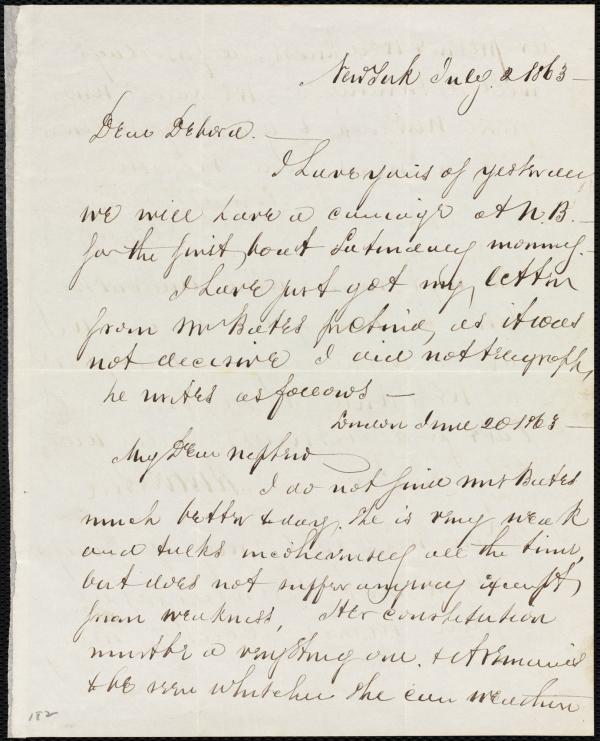 New York July 2 1863 —
Dear Debora. —
I have yours of yesterday
we will have a carriage at N. B. —
for the first boat Saturday morning. —
I have just got my letter
from Mr Bates as it was
not decisive I did not telegraph,
he writes as follows —
London June 20 1863 —
My Dear Nephew
I do not find Mrs Bates
much better today. She is very weak
and talks incoherently all the time,
but does not suffer anyway except
from weakness, Her constitution
must be a very strong one. & it remains
to be seen whether she can weather
182